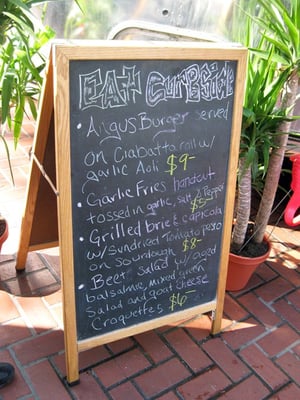 EAT CURBSIDE
• Angus Burger served
on Ciabatta roll w/
garlic Aoli $9-
• Garlic Fries handout
tossed in garlic, salt & Pepper
$5-
• Grilled brie & capicola
w/ sundried Tomato pesto
on sourdough $8-
• Beet Salad w/ aged
balsalmic, mixed green
Salad and goat cheese
Croquettes $6-